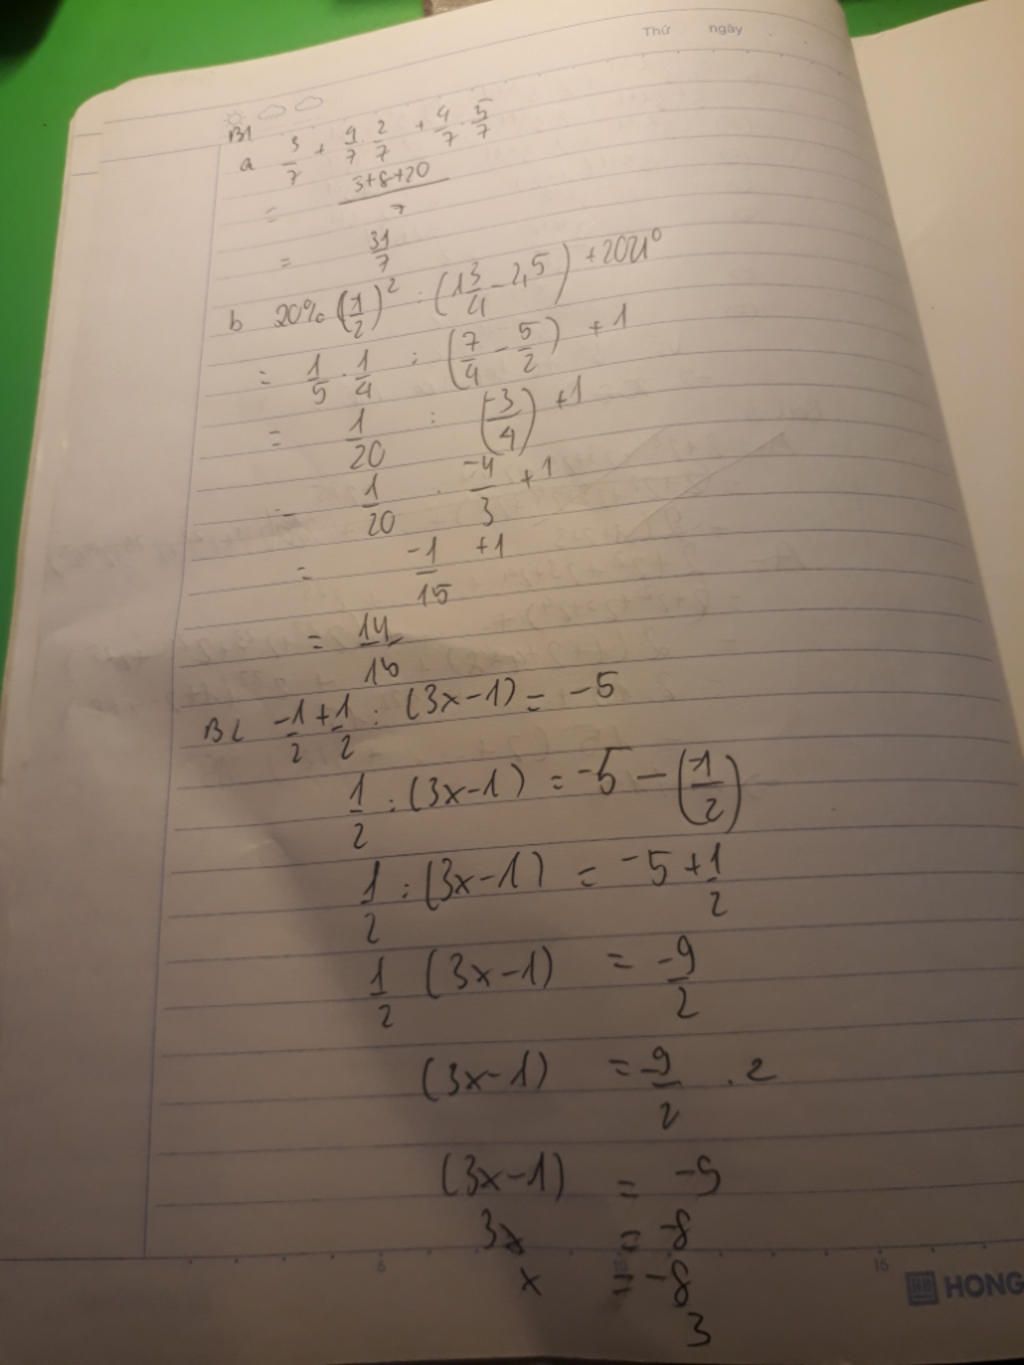 Thứ ngày
B1
a 3/7 + 4/7 . 2/7 + 4/7 . 5/7
= (3+8+20)/7
= 31/7
b 20% (1/2)² : (1 3/4 - 2,5) + 2021⁰
= 1/5 . 1/4 : (7/4 - 5/2) + 1
= 1/20 : (-3/4) + 1
= 1/20 . -4/3 + 1
= -1/15 + 1
= 14/15
B2 -1/2 + 1/2 : (3x-1) = -5
1/2 : (3x-1) = -5 - (-1/2)
1/2 : (3x-1) = -5 + 1/2
1/2 (3x-1) = -9/2
(3x-1) = -9/2 . 2
(3x-1) = -9
3x = -8
x = -8/3
6 10 16
HONG